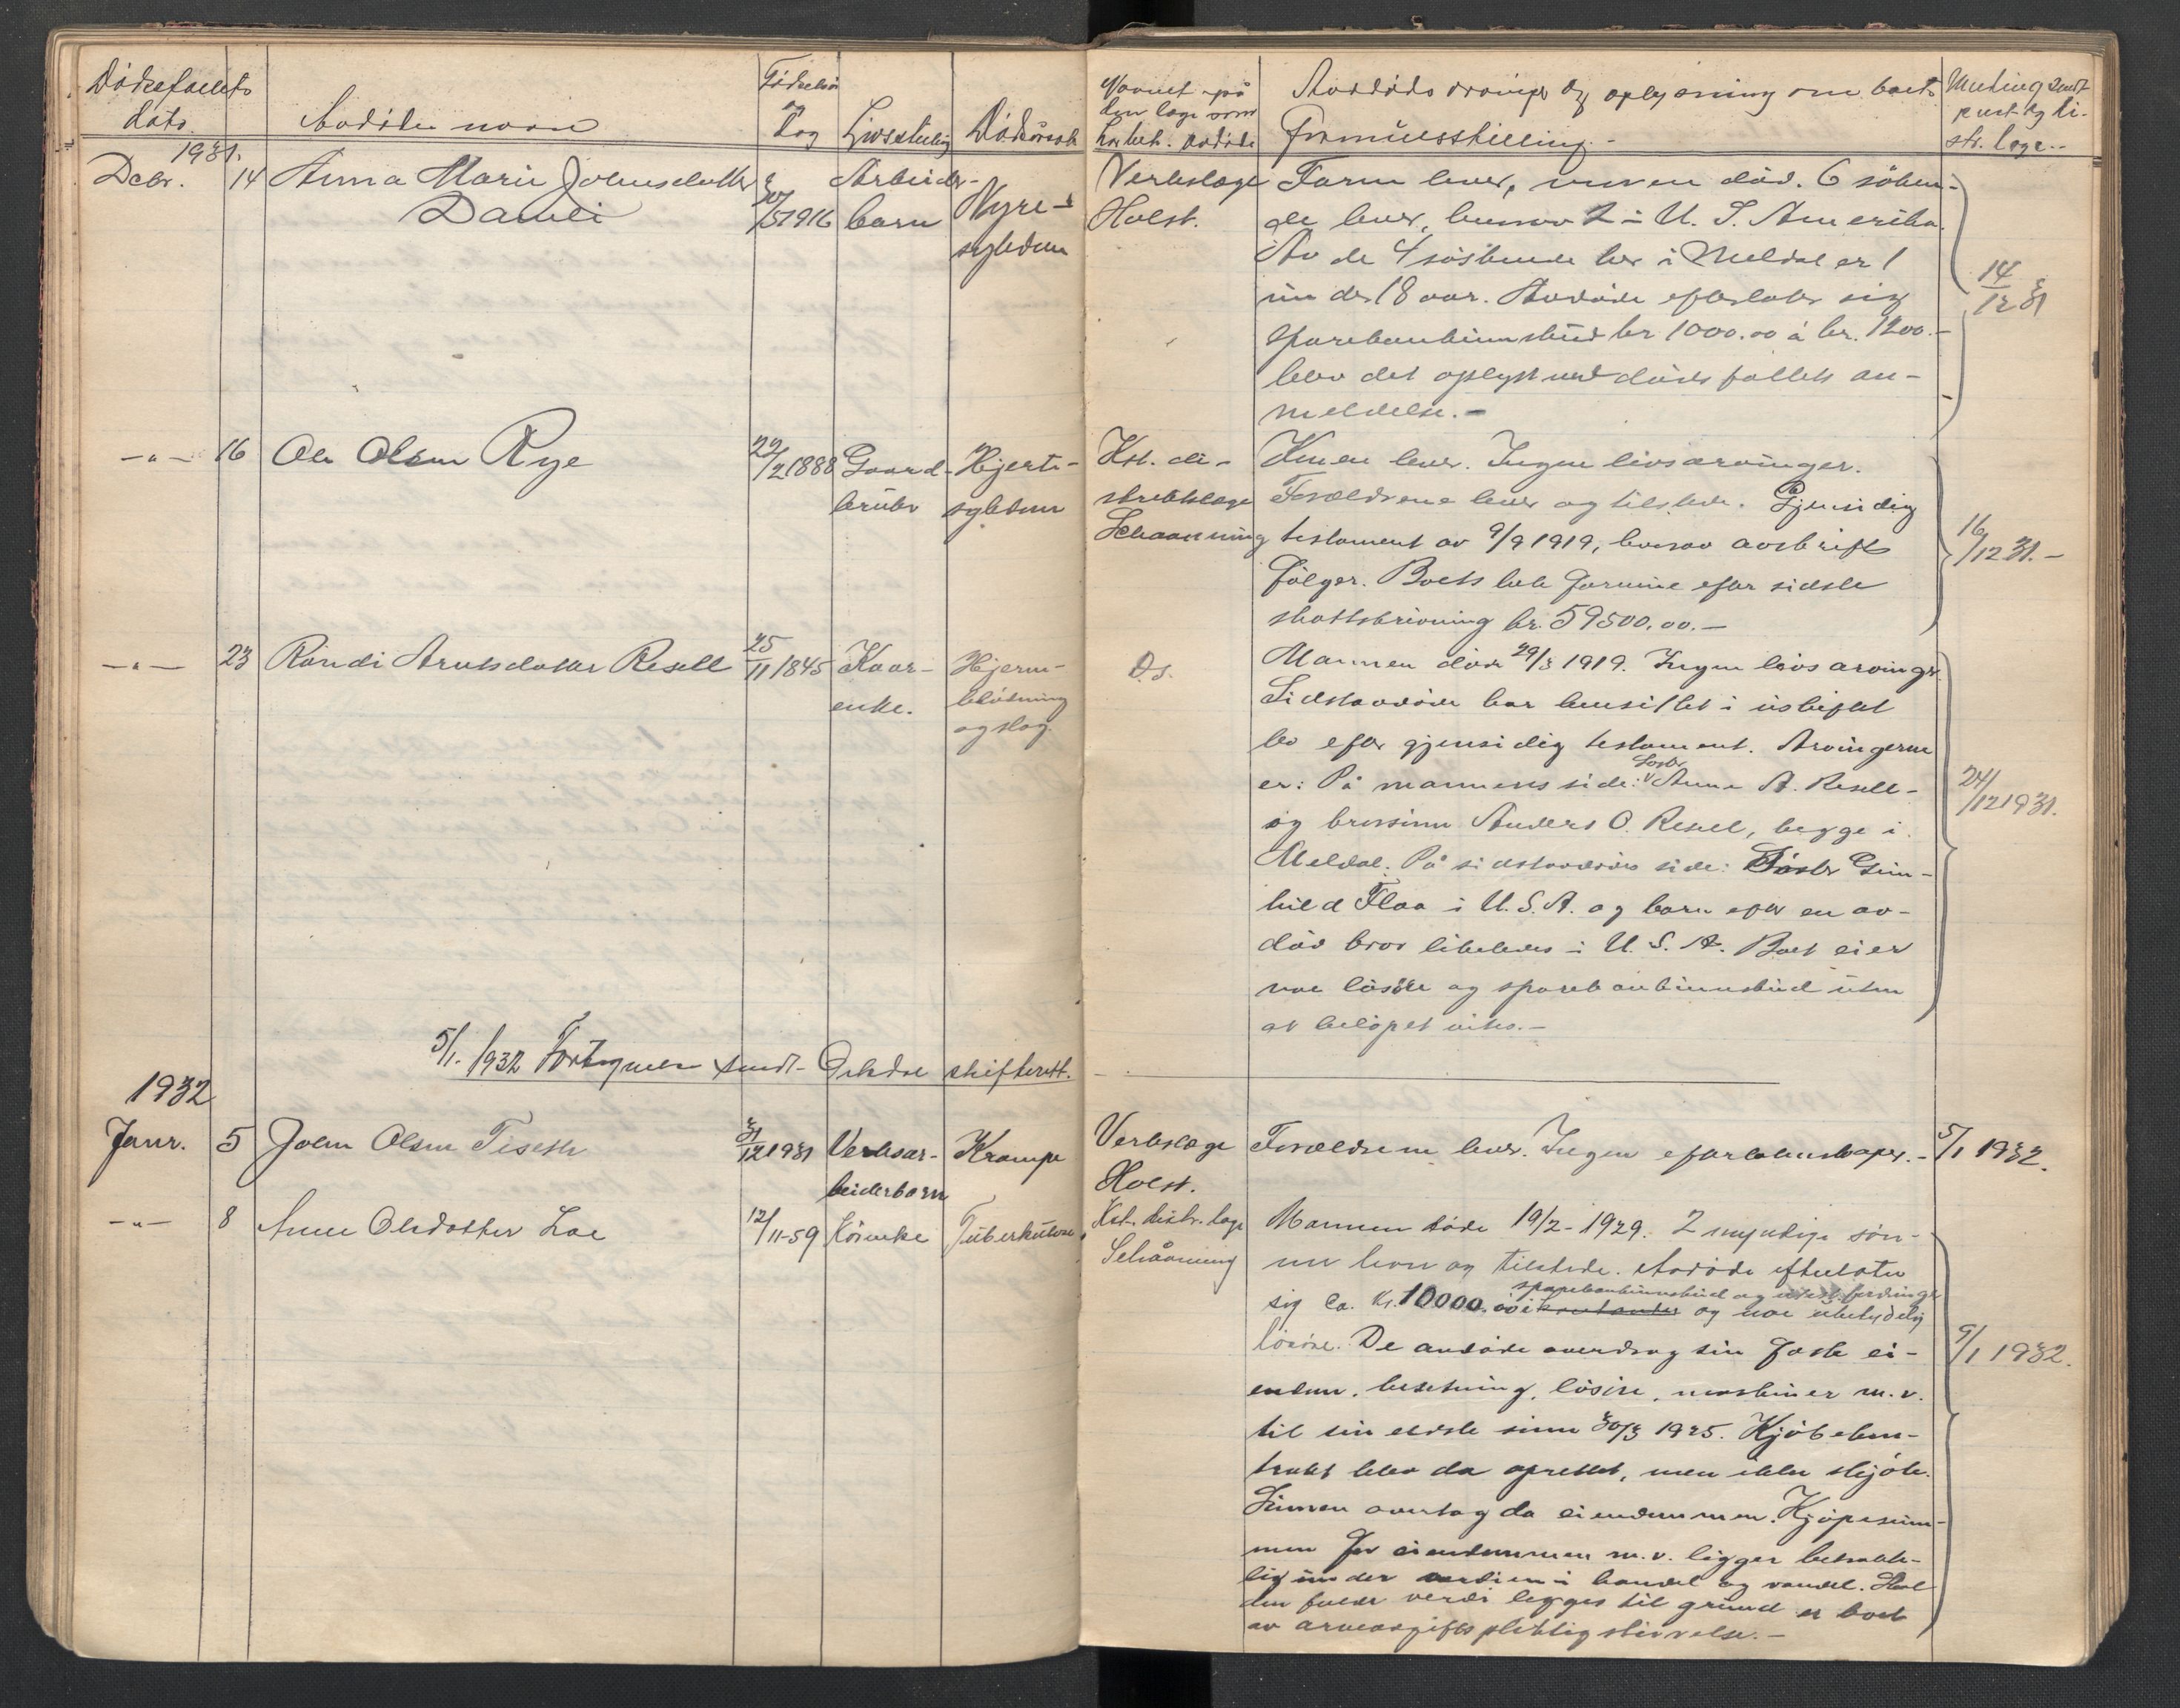 Dødsfallets dato
Avdødes navn
Fødselsår og dag
Livsstilling
Dødsårsak
Navnet på den læge som har beh. avdøde
Avdødes arvinger og oplysning om boets formuesstilling.-
Melding sendt distr. læge.-
1931.
Debr. 14 Anna Marie Johnsdatter
30/5 1916 Arbeider-
Damli
barn
Nyre-
sykdom
Verkslæge
Holst.
Faren lever, moren död. 6 sösken-
de lever, hvorav 2 i U. S. Amerika.
Av de 4 söskende her i Meldal er 1
under 18 aar. Avdöde efterlater sig
sparebankinnskud kr 1000.00 à kr. 1200.-
blev det oplyst ved dödsfallets an-
meldelse.-
14/12 31
-"- 16 Ole Olsen Rye
22/2 1888 Gaard-
bruker
Hjerte-
sykdom
Kst. di-
striktslæge
Schaanning
Konen lever. Ingen livsarvinger.
Forældrene lever og tilstede. Gjensidig
testament av 9/9 1919, hvorav avskrift
fölger. Boets hele formue efter sidste
skattskrivning kr. 59500.00.-
16/12 31.-
-"- 23 Randi Arntsdatter Resell
25/11 1845 Kaar-
enke.
Hjerne-
blödning
og slag.
Ds.
Mannen döde 29/3 1919. Ingen livsarvinger.
Sidstavdöde har hensittet i uskiftet
bo efter gjensidig testament. Arvingerne
er: På mannens side: Søster Anne A. Resell-
og brorsønn Anders O. Resell, begge i
Meldal. På sidstavdödes side: Söster Gun-
hild Flaa i U.S.A. og barn efter en av-
död bror likeledes i U. S. A. Boet eier
noe lösöre og sparebankinnskud uten
at belöpet vites.-
24/12 1931.
5/1. 1932 Fortegnelse sendt Orkdal skifterett.
1932
Janr. 5 John Olsen Teseth
31/12 1931 Verksar-
beiderbarn
Krampe
Verkslæge
Holst.
Forældrene lever. Ingen efterlatenskaper.-
5/1 1932.
-"- 8 Anne Olsdatter Loe
12/11-59 Kårenke
Tuberkulose
Kst. distr. læge
Schåanning
Mannen døde 19/2-1929. 2 myndige søn-
ner lever og tilstede. Avdøde efterlater
sparebankinnskud og utest. fordringer
sig ca. kr. 10000.00 i kontanter og noe ubetydelig
lösöre. De avdöde overdrog sin faste ei-
endom, besetning, lösöre, maskiner m.v.
til sin eldste sönn 30/3 1925. Kjöbekon-
trakt blev da oprettet, men ikke skjöte.
Sönnen overtog da eiendommen. Kjöpesum-
men for eiendommen m.v. ligger betrakte-
lig under verdien i handel og vandel. Skal
den fulde verdi legges til grund er boet
av arveavgiftspliktig störrelse.-
9/1 1932.